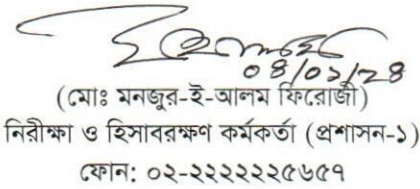 ০৪/০১/২৪
(মোঃ মনজুর-ই-আলম ফিরোজী)
নিরীক্ষা ও হিসাবরক্ষণ কর্মকর্তা (প্রশাসন-১)
ফোন: ০২-২২২২২৫৬৫৭